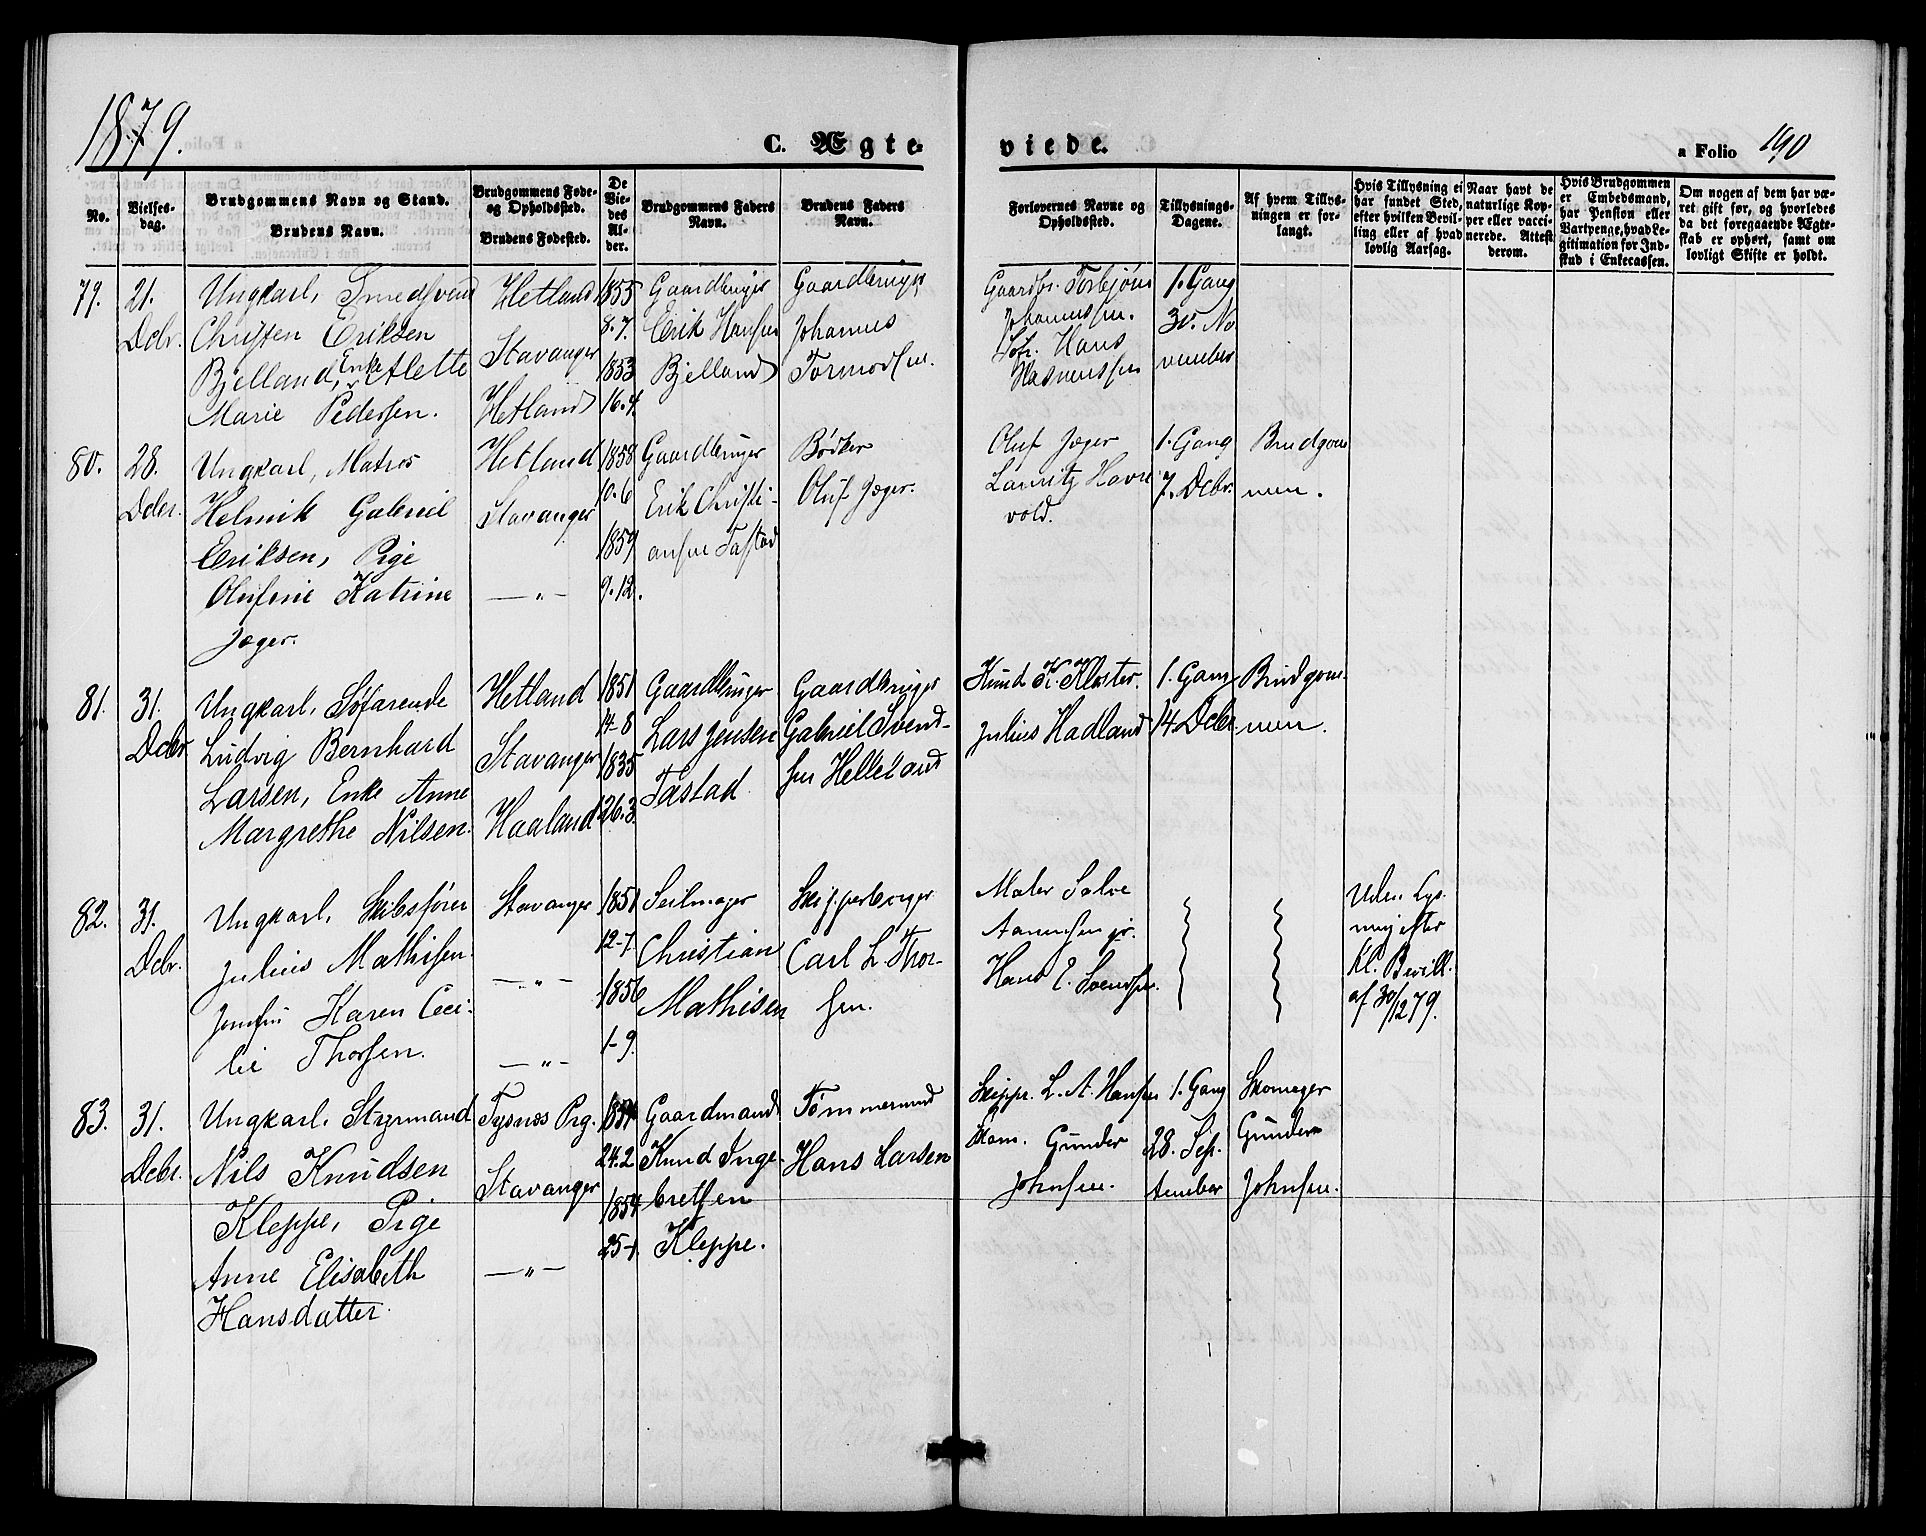 1879.
C. Ægte-
viede.
a Folio 190
No.
Vielses-
dag.
Brudgommens Navn og Stand.
Brudens Navn.
Brudgommens Føde-
og Opholdssted.
Brudens Fødested.
De
Vie-
des
Al-
der.
Brudgommens Faders
Navn.
Brudens Faders
Navn.
Forlovernes Navne og
Opholdssted.
Tillysnings-
Dagene.
Af hvem Tillys-
ningen er for-
langt.
Hvis Tillysning ei
har fundet Sted,
efter hvilken Bevil-
ling eller af hvad
lovlig Aarsag.
Naar havt de
naturlige Kop-
per eller vacci-
nerede. Attest
derom.
Hvis Brudgommen
er Embedsmand,
har Pension eller
Vartpenge, hvad Le-
gitimation for Ind-
skud i Enkecassen.
Om nogen af dem har væ-
ret gift før, og hvorledes
da det foregaaende Ægte-
skab er ophørt, samt om
lovligt Skifte er holdt.
79.
21.
Dcbr.
Ungkarl, Smedsvend
Christen Eriksen
Bjelland, Enke Alette
Marie Pedersen.
Hetland
Stavanger
Hetland
1855
8.7.
1853
16.4.
Gaardbruger
Erik Hansen
Bjelland
Gaardbruger
Johannes
Tormodsen.
Gaardbr. Torbjørn
Johannessen.
Søf. Hans
Rasmussen
1. Gang
30. No-
vember
80.
28.
Dcbr.
Ungkarl, Matros
Helmik Gabriel
Eriksen, Pige
Olufine Katrine
Jæger.
Hetland
Stavanger
—„—
1858
10.6
1859
9.12.
Gaardbruger
Erik Christi-
ansen Tastad
Bødker
Oluf Jæger.
Oluf Jæger
Lauritz Havre
vold.
1. Gang
7. Dcbr.
Brudgom
men.
81.
31.
Dcbr.
Ungkarl, Søfarende
Ludvig Bernhard
Larsen, Enke Anne
Margrethe Nilsen.
Hetland
Stavanger
Haaland
1851
14-8
1835
26.3.
Gaardbruger
Lars Jensen
Tastad
Gaardbruger
Gabriel Svend-
sen Helleland
Knud K. Kloster.
Julius Hadland
1. Gang
14 Dcbr.
Brudgom-
men.
82.
31.
Dcbr.
Ungkarl, Skibsfører
Julius Mathisen
Jomfru Karen Ceci-
lie Thorsen.
Stavanger
—„—
—„—
1851
12-7.
1856
1-9.
Seilmager
Christian
Mathisen
Skipperborger
Carl L. Thor-
sen.
Maler Salve
Aanensen jr.
Hans E. Svendsen.
Uden Lys-
ning efter
Kl. Bevill.
af 30/12 79.
83.
31.
Dcbr.
Ungkarl, Styrmand
Nils Knudsen
Kleppe, Pige
Anne Elisabeth
Hansdatter.
Tysnes Prg.
Stavanger
—„—
24.2
1854
25-1.
Gaardmand
Knud Inge-
bretsen
Kleppe.
Tømmermand
Hans Larsen
Skippr. L. A. Hansen
Skom. Gunder
Johnsen.
1. Gang
28. Sep-
tember
Skomager
Gunder
Johnsen.